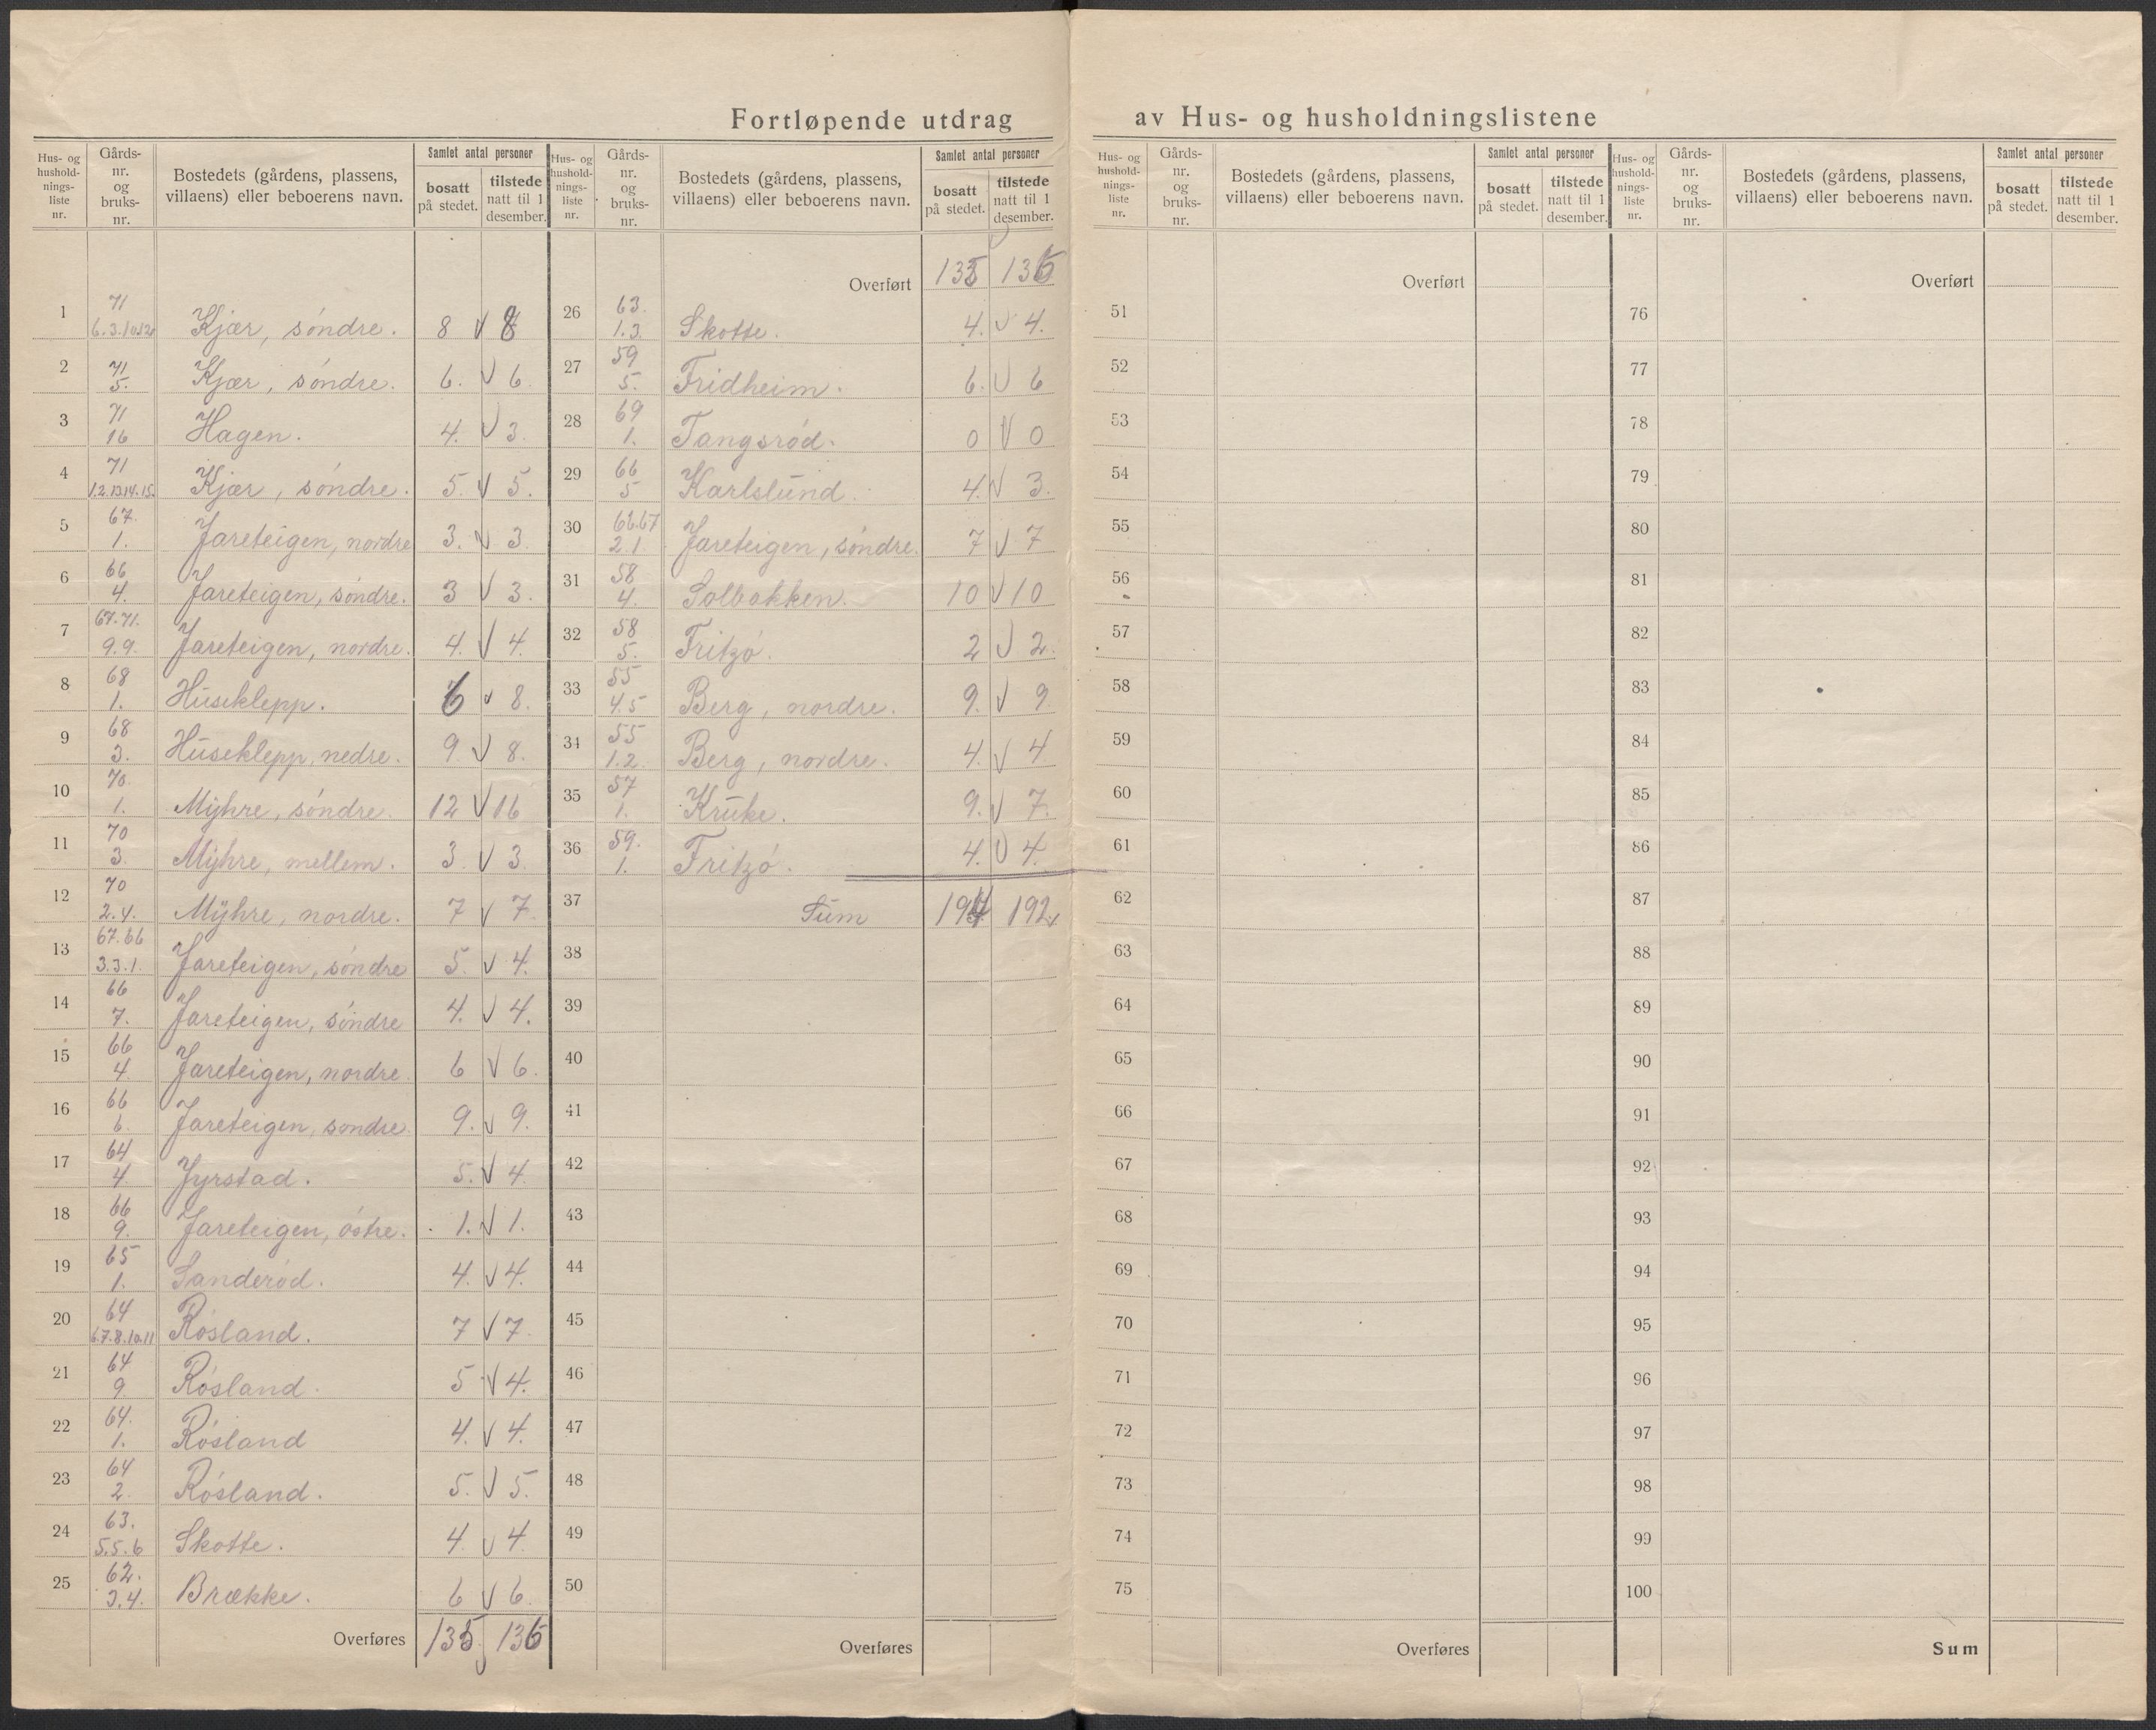 Fortløpende utdrag av Hus- og husholdningslistene
Hus- og hushold-nings-liste nr. | Gårds-nr. og bruks-nr. | Bostedets (gårdens, plassens, villaens) eller beboerens navn. | Samlet antal personer | bosatt på stedet. | tilstede natt til 1 desember.
1 | 71 6.3.10.12 | Kjær, søndre. | 8 √ 8
2 | 71 5. | Kjær, søndre. | 6. √ 6.
3 | 71 16 | Hagen. | 4. √ 3.
4 | 71 1.2.13.14.15. | Kjær, søndre. | 5. √ 5.
5 | 67. 1. | Jareteigen, nordre | 3. √ 3.
6 | 66 4. | Jareteigen, søndre. | 3 √ 3.
7 | 67.71. 9.9. | Jareteigen, nordre. | 4. √ 4.
8 | 68 1. | Huseklepp. | 6 √ 8.
9 | 68 3. | Huseklepp, nedre. | 9 √ 8.
10 | 70. 1. | Myhre, søndre. | 12 √ 16
11 | 70 3. | Myhre, mellem. | 3. √ 3.
12 | 70 2.4. | Myhre, nordre. | 7 √ 7.
13 | 67.66 3.3.1. | Jareteigen, søndre | 5. √ 4.
14 | 66 7. | Jareteigen, søndre | 4. √ 4.
15 | 66 4. | Jareteigen, nordre. | 6 √ 6.
16 | 66 6. | Jareteigen, søndre. | 9. √ 9.
17 | 64 4. | Jyrstad. | 5. √ 4.
18 | 66 9. | Jareteigen, østre. | 1. √ 1.
19 | 65 1. | Sanderød. | 4. √ 4.
20 | 64 6.7.8.10.11 | Røsland. | 7 √ 7.
21 | 64 9. | Røsland. | 5 √ 4.
22 | 64. 1. | Røsland | 4. √ 4.
23 | 64 2. | Røsland. | 5. √ 5.
24 | 63. 5.5.6 | Skotte. | 4. √ 4.
25 | 62. 3.4. | Brække. | 6 √ 6.
Overføres | 135 | 136
Hus- og hushold-nings-liste nr. | Gårds-nr. og bruks-nr. | Bostedets (gårdens, plassens, villaens) eller beboerens navn. | Samlet antal personer | bosatt på stedet. | tilstede natt til 1 desember.
Overført | 135 | 136
26 | 63. 1.3. | Skotte. | 4. √ 4.
27 | 59 5. | Fridheim. | 6. √ 6
28 | 69 1. | Tangsrød. | 0 √ 0
29 | 66 5 | Karlslund. | 4. √ 3.
30 | 66.67 2.1. | Jareteigen, søndre. | 7 √ 7
31 | 58 4. | Solbakken. | 10 √ 10
32 | 58 5. | Fritzø. | 2 √ 2.
33 | 55 4.5 | Berg, nordre. | 9. √ 9
34 | 55 1.2. | Berg, nordre. | 4. √ 4
35 | 57 1. | Kruke. | 9. √ 7.
36 | 59. 1. | Fritzø. | 4. √ 4.
37 | Sum | 194 | 192
38
39
40
41
42
43
44
45
46
47
48
49
50
Overføres
Hus- og hushold-nings-liste nr. | Gårds-nr. og bruks-nr. | Bostedets (gårdens, plassens, villaens) eller beboerens navn. | Samlet antal personer | bosatt på stedet. | tilstede natt til 1 desember.
Overført
51
52
53
54
55
56
57
58
59
60
61
62
63
64
65
66
67
68
69
70
71
72
73
74
75
Overføres
Hus- og hushold-nings-liste nr. | Gårds-nr. og bruks-nr. | Bostedets (gårdens, plassens, villaens) eller beboerens navn. | Samlet antal personer | bosatt på stedet. | tilstede natt til 1 desember.
Overført
76
77
78
79
80
81
82
83
84
85
86
87
88
89
90
91
92
93
94
95
96
97
98
99
100
Sum